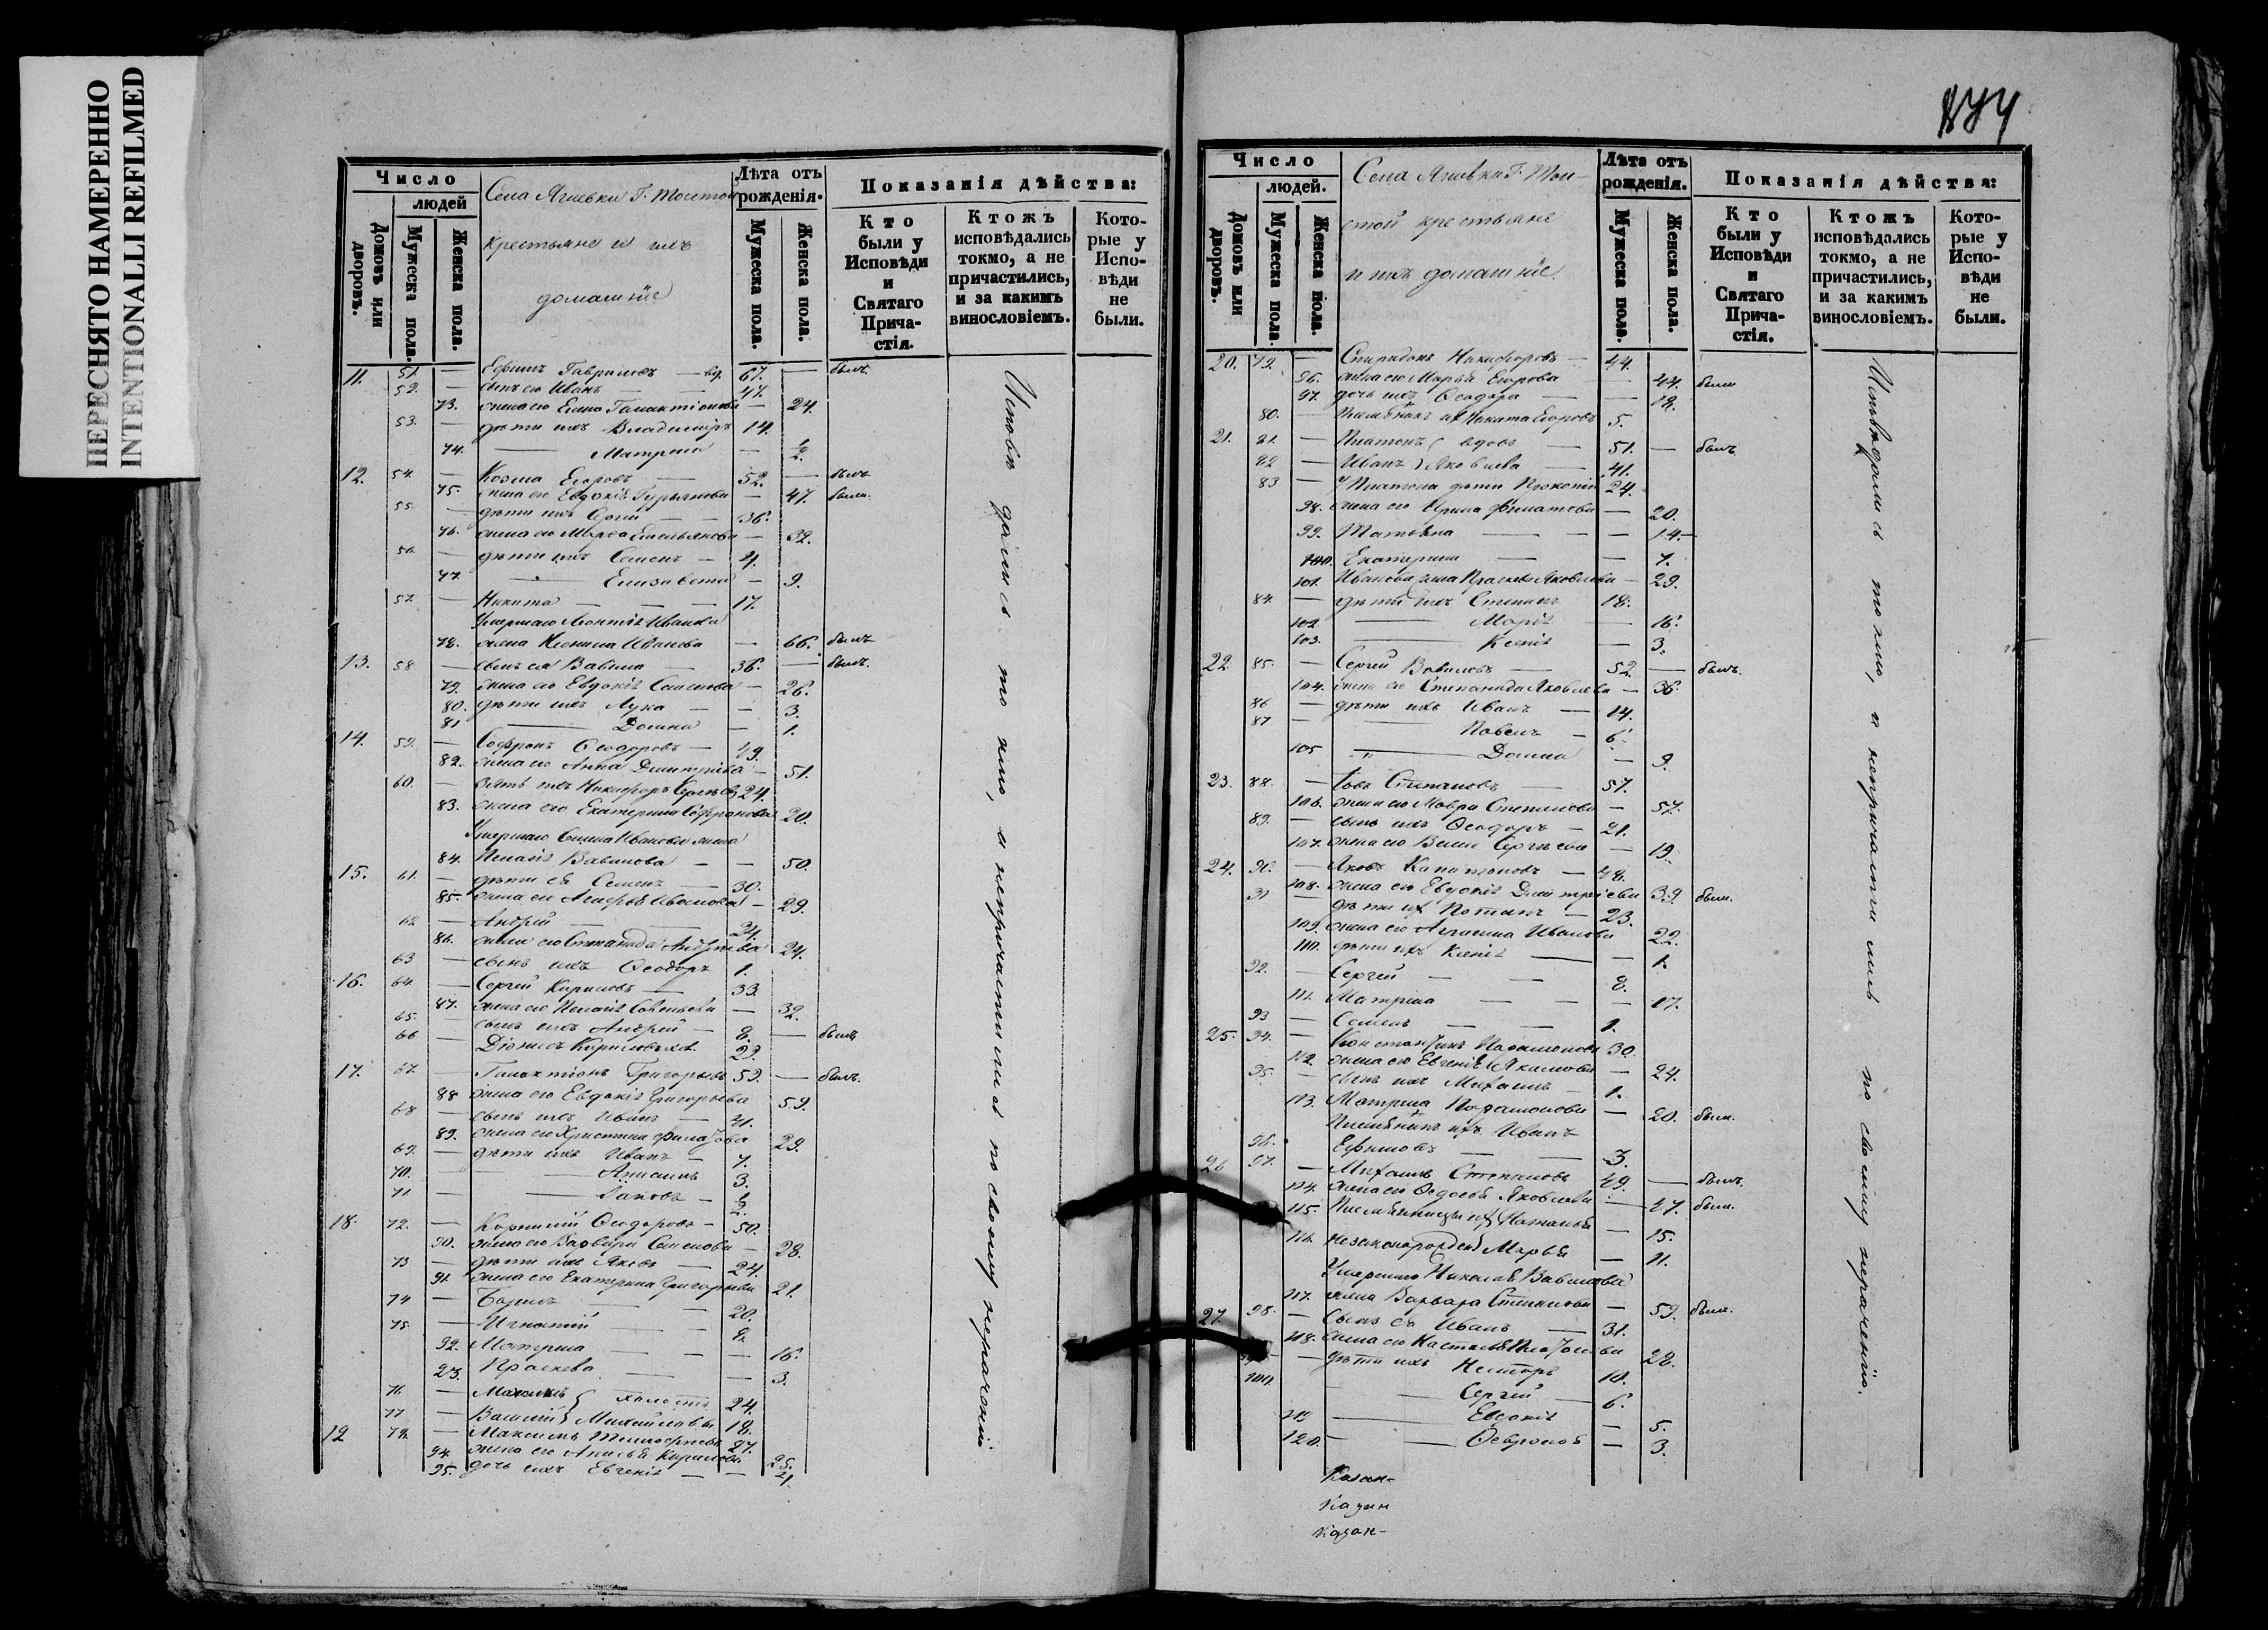 ПЕРЕСНЯТО НАМЕРЕННО
INTENTIONALLI REFILMED
Число
людей
Домовъ или дворовъ.
Мужеска пола.
Женска пола.
Села Г. Толстой
крестьяне и ихъ
домашніе
Лѣта отъ рожденія.
Мужеска пола.
Женска пола.
Показанія дѣйства:
Кто были у Исповѣди и Святаго Причастія.
Ктожъ исповѣдались токмо, а не причастились, и за какимъ винословіемъ.
Которые у Исповѣди не были.
11. 51. — Ефимъ Гавриловъ — вд. 67. — былъ.
52. — сынъ его Иванъ — 47.
73. жена его Елена Галактіонова — 24.
53. — дѣти ихъ Владиміръ 14.
74. — Матрена — ½.
12. 54. — Козма Егоровъ — 52. — былъ
75. жена его Евдокія Гурьянова — 47. была.
55. — дѣти ихъ Сергій — 36.
76. жена его Марѳа Емельянова — 32.
56. — дѣти ихъ Семенъ — 4.
77. — Елизавета — 9.
57. — Никита — 17.
Умершаго Леонтія Иванова
78. жена Ксенія Иванова — 66. была
13. 58 — сынъ ея Вавила — 36. — былъ.
79. жена его Евдокія Семенова — 26.
80. дѣти ихъ Лука — 3.
81 — Домна — 1.
14. 59. — Софронъ Ѳеодоровъ — 49.
82. жена его Анна Дмитріева — 51.
60. — зять ихъ Никифоръ Сергѣевъ 24.
83. жена его Екатерина Софронова 20.
Умершаго Ивановa жена
84. Пелагія Вавилова — 50.
15. 61. — дѣти ея Семенъ — 30.
85. жена его Агафья Иванова — 29.
62 — Андрей — 24.
86. жена его Степанида Андреева 24.
63 — сынъ ихъ Ѳеодоръ 1.
16. 64. — Сергій Кириловъ — 33.
87. жена его Пелагія Савельева — 32.
65. — сынъ ихъ Андрей — 8. — былъ
66 — Діонисъ Кириловъ 22.
17. 67. — Галактіонъ Григорьевъ 59. — былъ.
88 жена его Евдокія Григорьева 59.
68 — сынъ ихъ Иванъ — 41.
89. жена его Христина Филатова 29.
69. — дѣти ихъ Иванъ — 7.
70. — Анисимъ 3.
71 — Іаковъ — ½.
18. 72. — Корнилій Ѳеодоровъ — 50.
90. жена его Варвара Семенова — 28.
73 — дѣти ихъ Яковъ — 24.
91. жена его Екатерина Григорьева 21.
74 — 20.
75. — Игнатій — 9.
92. Матрена — 16.
23. Праскева — 3.
76 — Максимъ холостъ 24.
77 — Василій Михайловы 18.
12 78. — Максимъ Тимоѳеевъ 27.
94. жена его Анисья Кирилова 25.
95. дочь ихъ Евгенія — 4.
Исповѣдались токмо, а непричастились по своему нераченію
Число
людей.
Домовъ или дворовъ.
Мужеска пола.
Женска пола.
Села Г. Тол-
стой крестьяне
и ихъ домашніе
Лѣта отъ рожденія.
Мужеска пола.
Женска пола.
Показанія дѣйства:
Кто были у Исповѣди и Святаго Причастія.
Ктожъ исповѣдались токмо, а не причастились, и за какимъ винословіемъ.
Которые у Исповѣди не были.
20. 79. — Спиридонъ Никифоровъ — 44.
96. жена его Марья Егорова — 44. была
97. дочь ихъ Ѳеодора — 12.
80. — Племянникъ их Никита Егоровъ 5.
21. 81. — Платонъ вдовъ 51. — былъ
82 — Иванъ Яковлева — 41.
83 — У Платона дѣти Прокопій 24.
98. жена его Ирина Филатова — 20.
99. Татьяна — 14.
100. Екатерина — 7.
101. Иванова жена Праскева Яковлева — 29.
84. — дѣти ихъ Степанъ 18.
102 — Марія — 16.
103. — Ксенія — 3.
22 85. — Сергій Вавиловъ — 52. — былъ.
104. жена его Степанида Яковлева — 36.
86 — дѣти ихъ Иванъ — 14.
87. — Павелъ — 6.
105 — Домна — 9.
23. 88. — Іовъ Степановъ — 57.
106. жена его Мавра Степанова — 57.
89. — сынъ ихъ Ѳеодоръ — 21.
107. жена его Сергѣева — 19.
24. 90. — Яковъ Капитоновъ — 48.
108. жена его Евдокія Дмитріева 39 была.
91 — дѣти их Потапъ — 23.
109. жена его Иванова 22.
110. дѣти ихъ Ксенія — 1.
92. — Сергей — 8.
111. Матрена — 17.
93 — Семенъ — 1.
25. 94. — Константинъ Парамоновъ 30.
112. жена его Евгенія Якимова — 24.
95. — сынъ ихъ Михаилъ — 1.
113. Матрена Парамонова — 20. была.
Племянникъ их Иванъ
96. Ефимовъ — 3.
26 97. — Михаилъ Степановъ 49. — былъ.
114. жена его Ѳедосья Яковлева — 47. была.
115. Племянницы их Наталья — 15.
116. незаконорожден Марья — 11.
Умершаго Николая Вавилова
117. жена Варвара Степанова — 59. была.
27. 98. — Сынъ ея Иванъ — 31.
118. жена его Настасья 28.
— дѣти ихъ Несторъ 10.
100. — Сергій — 6.
119 — Евдокія — 5.
120. — Ѳевронія — 3.
Исповѣдались токмо, а непричастились по своему нераченію.
Казан-
Казан
Казан-